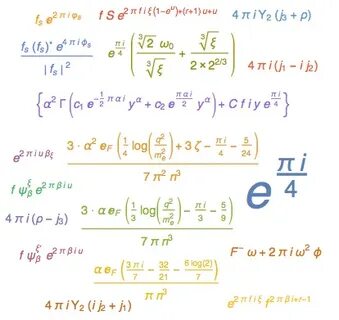 f_s e^{2 π i φ_s}
f S e^{2 π f i ξ (1-e^u)+(r+1) u+u}
4 π i Y_2 (j_3 + ρ)
f_s (f_s)^* e^{4 π i φ_s} / | f_s |^2
e^{π i / 4} ( \sqrt[3]{2} ω_0 / \sqrt[3]{ξ} + \sqrt[3]{ξ} / (2 × 2^{2/3}) )
4 π i (j_1 - i j_2)
{α^2 Γ (c_1 e^{-1/2 π α i} y^α + c_2 e^{π α i / 2} y^α) + C f i y e^{π i / 4}}
e^{2 π i u β ξ}
3 · α^2 e_F (1/4 log(q^2 / m_e^2) + 3 ζ - π i / 4 - 5/24) / 7 π^2 n^3
e^{π i / 4}
f ψ_β^ξ e^{2 π β i u}
3 · α e_F (1/3 log(q^2 / m_e^2) - π i / 3 - 5/9) / 7 π n^3
4 π i (ρ - j_3)
f ψ_β^ξ e^{2 π β i u}
F^- ω + 2 π i ω^2 ϕ
α e_F (3 π i / 7 - 32/21 - 6 log(2) / 7) / π n^3
4 π i Y_2 (i j_2 + j_1)
e^{2 π f i ξ} f^{2 π β i + r - 1}